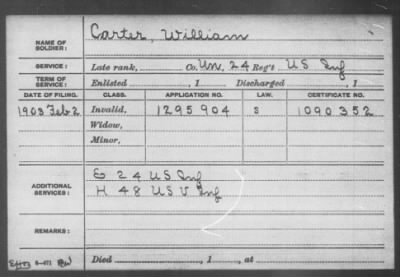 NAME OF SOLDIER: Carter, William
SERVICE: Late rank, Co. Un, 24 Reg't US Inf
TERM OF SERVICE: Enlisted , 1 Discharged , 1
DATE OF FILING. CLASS. APPLICATION NO. LAW. CERTIFICATE NO.
1903 Feb 2 Invalid, 1295904 S 1090352
Widow,
Minor,
ADDITIONAL SERVICES: G 24 US Inf
H 48 US V Inf
REMARKS:
Died , 1 , at